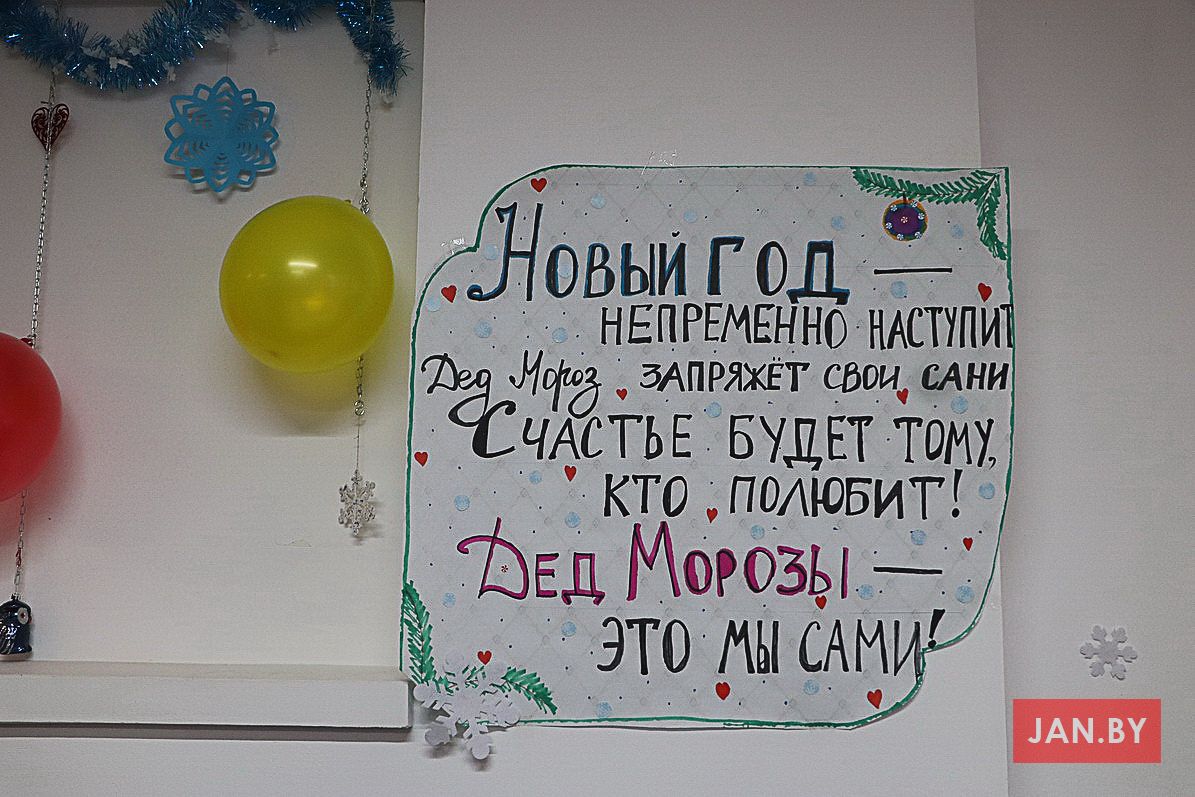 Новый год —
НЕПРЕМЕННО НАСТУПИТ
Дед Мороз ЗАПРЯЖЁТ СВОИ САНИ
СЧАСТЬЕ БУДЕТ ТОМУ,
КТО ПОЛЮБИТ!
ДЕД МОРОЗЫ —
ЭТО МЫ САМИ!
JAN.BY